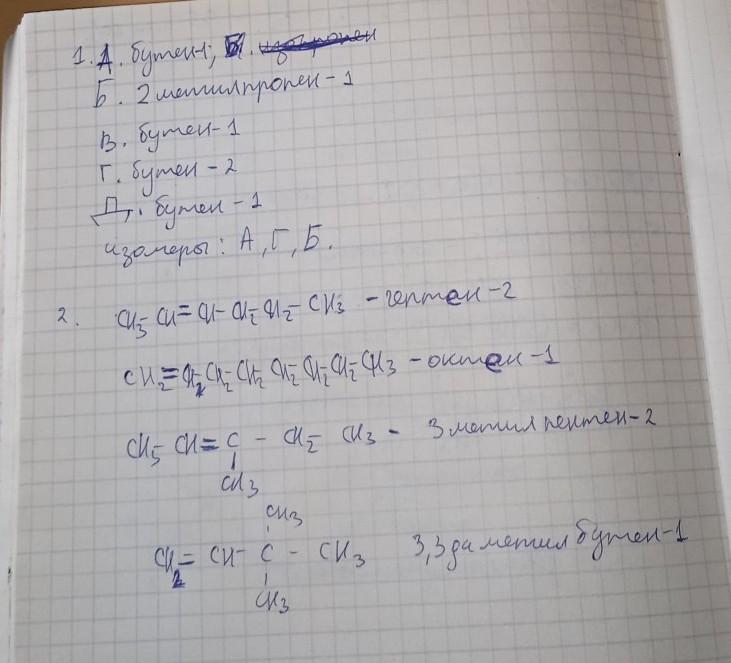 1. А. бутен-1; Б.
Б. 2метилпропен-1
В. бутен-1
Г. бутен-2
Д. бутен-1
изомеры: А, Г, Б.
2. CH3-CH=CH-CH2-CH2-CH3 - гептен-2
CH2=CH2-CH2-CH2-CH2-CH2-CH2-CH3 - октен-1
CH3-CH=C-CH2-CH3 - 3метилпентен-2
CH3
CH3
CH2=CH-C-CH3 3,3диметилбутен-1
CH3